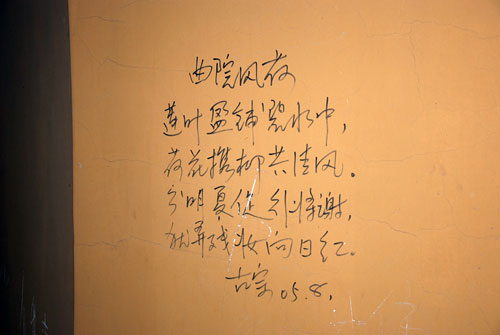 曲院风荷
莲叶盈铺碧水中，
荷花携柳共清风。
分明夏促 将谢，
就弄残妆向日红。
古宗 05.8.